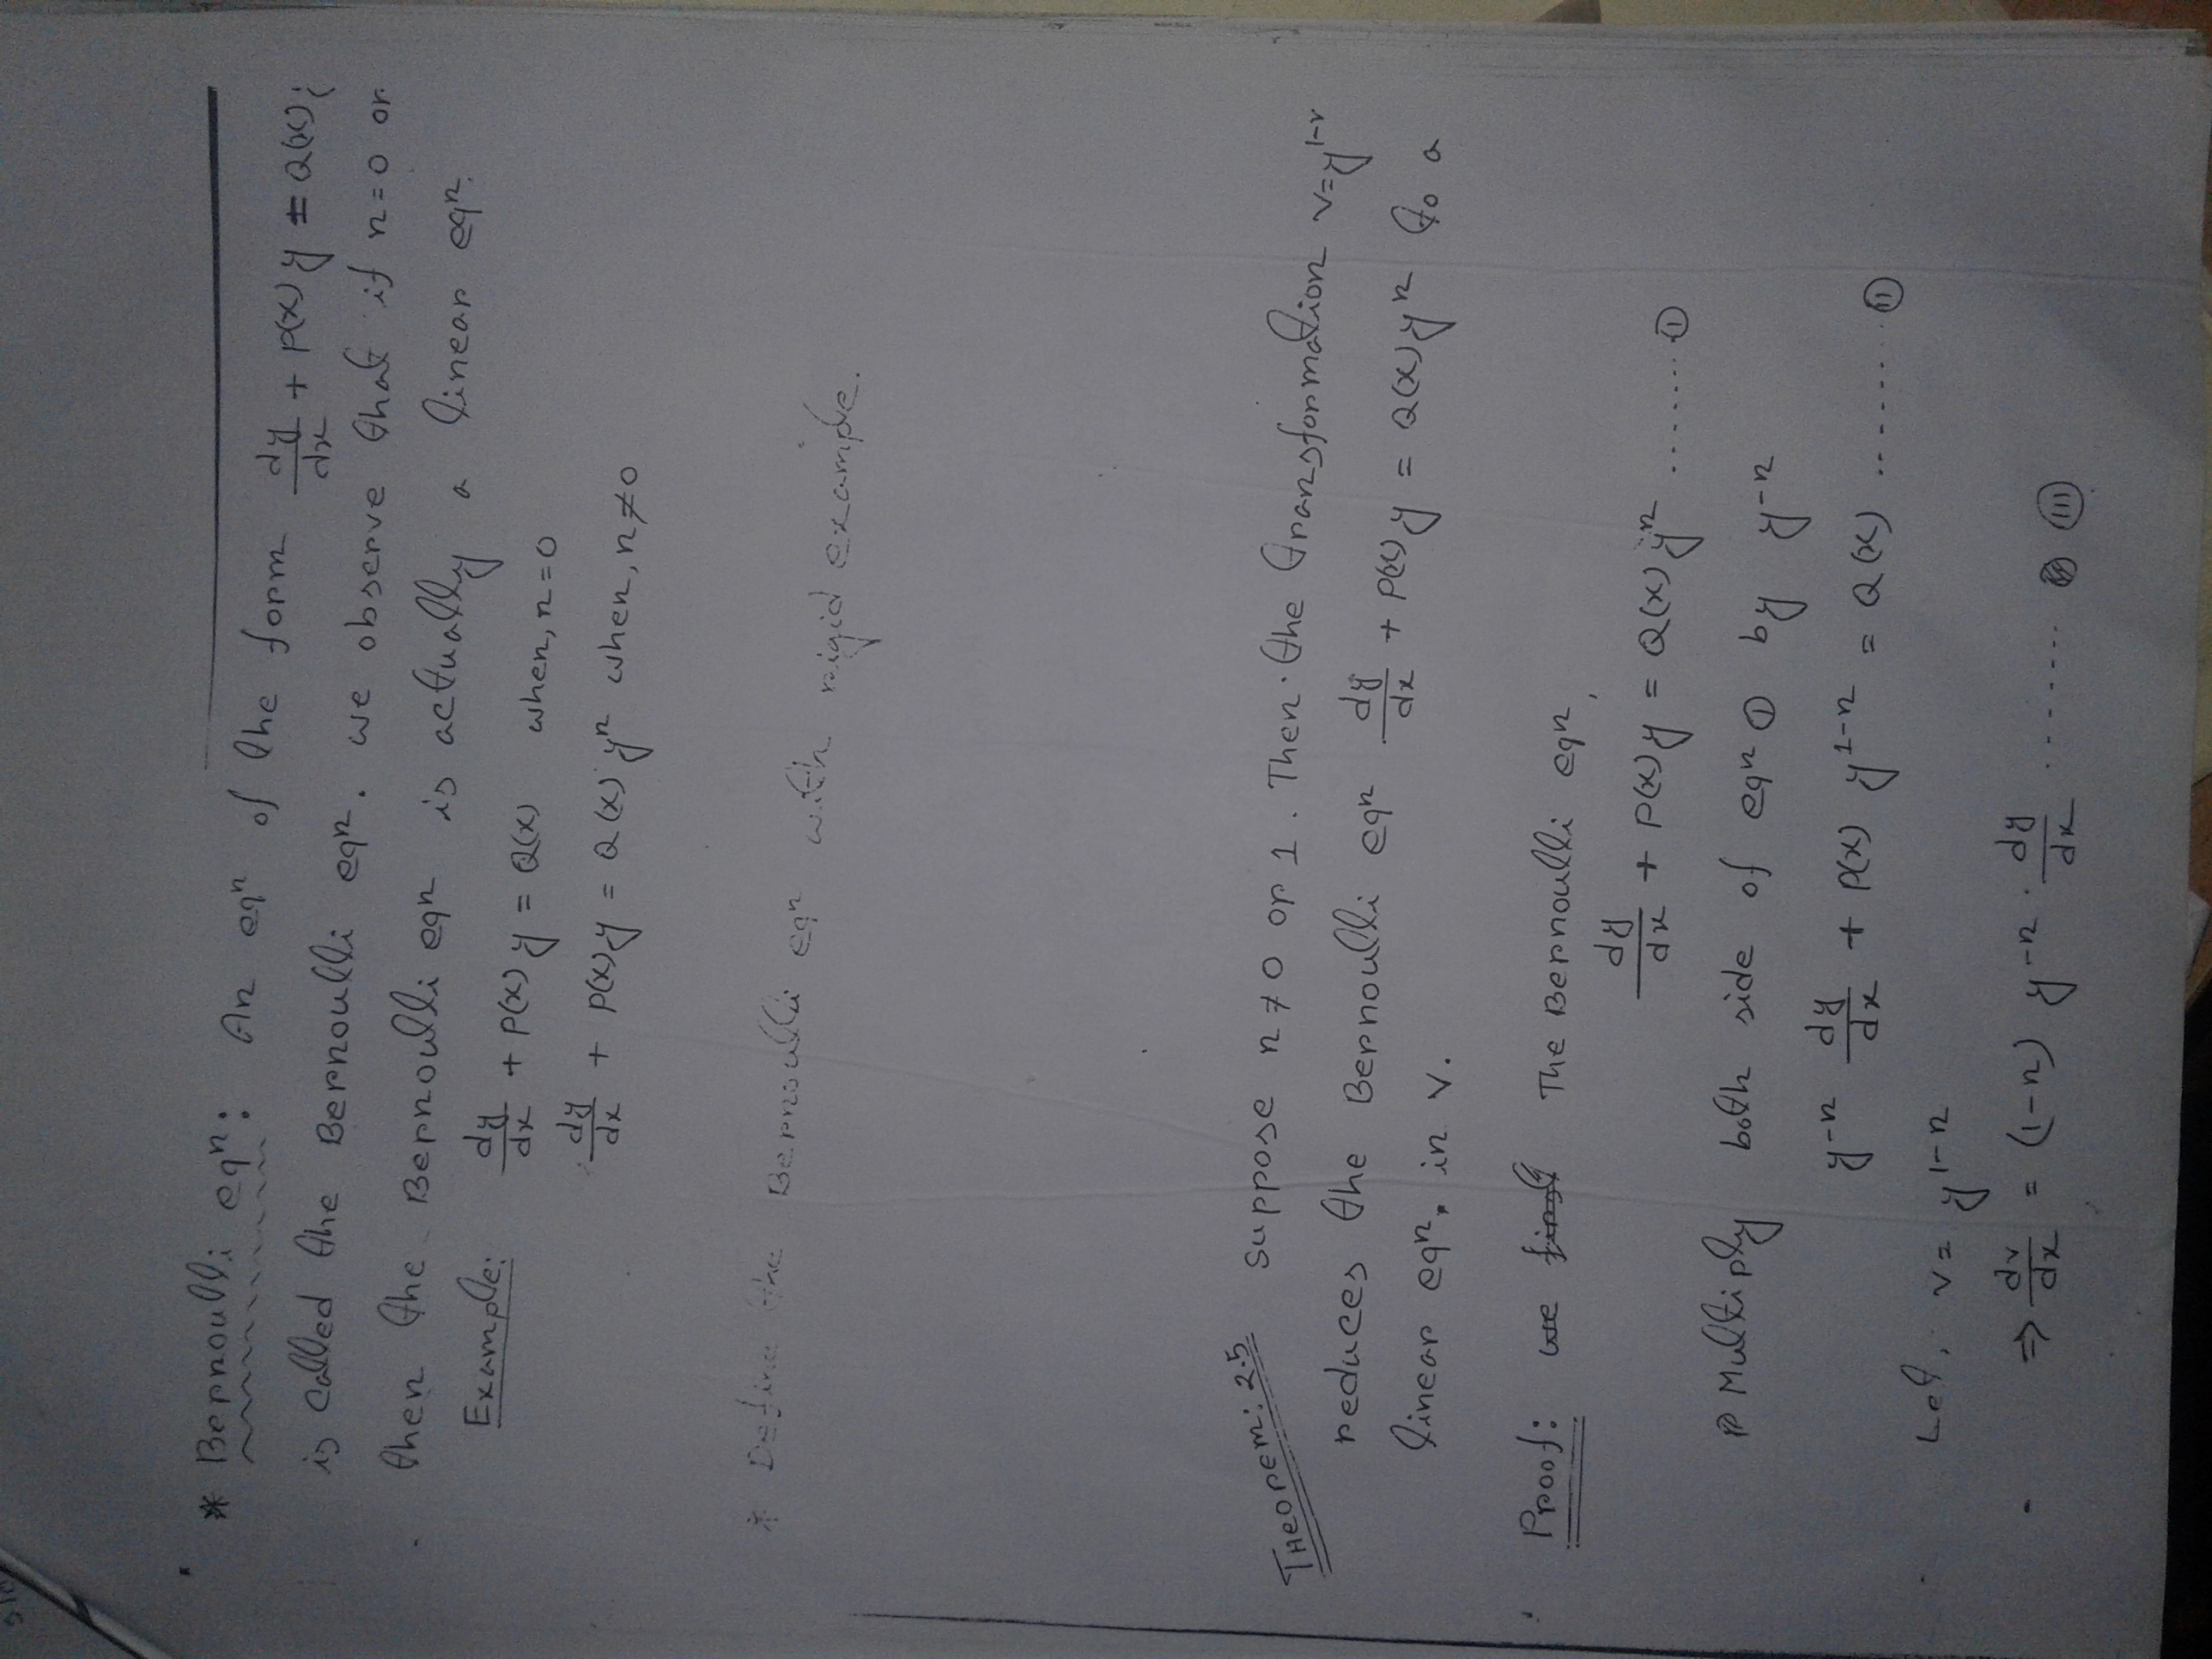 * Bernoulli eqⁿ: An eqⁿ of the form dy/dx + P(x) y = Q(x)
is called the Bernoulli eqⁿ. we observe that if n=0 or
then the Bernoulli eqⁿ is actually a linear eqⁿ.
Example: dy/dx + P(x) y = Q(x) when, n=0
dy/dx + P(x) y = Q(x) yⁿ when, n≠0
* Define the Bernoulli eqⁿ with rigid example.
Theorem: 2.5 Suppose n≠0 or 1. Then the transformation v=y¹⁻
reduces the Bernoulli eqⁿ dy/dx + P(x) y = Q(x) yⁿ to a
linear eqⁿ. in v.
Proof: we first The Bernoulli eqⁿ,
dy/dx + P(x) y = Q(x) yⁿ ....... ①
Multiply both side of eqⁿ ① by y⁻ⁿ
y⁻ⁿ dy/dx + P(x) y¹⁻ⁿ = Q(x) ....... ⑪
Let, v = y¹⁻ⁿ
⇒ dv/dx = (1-n) y⁻ⁿ . dy/dx ....... (III)